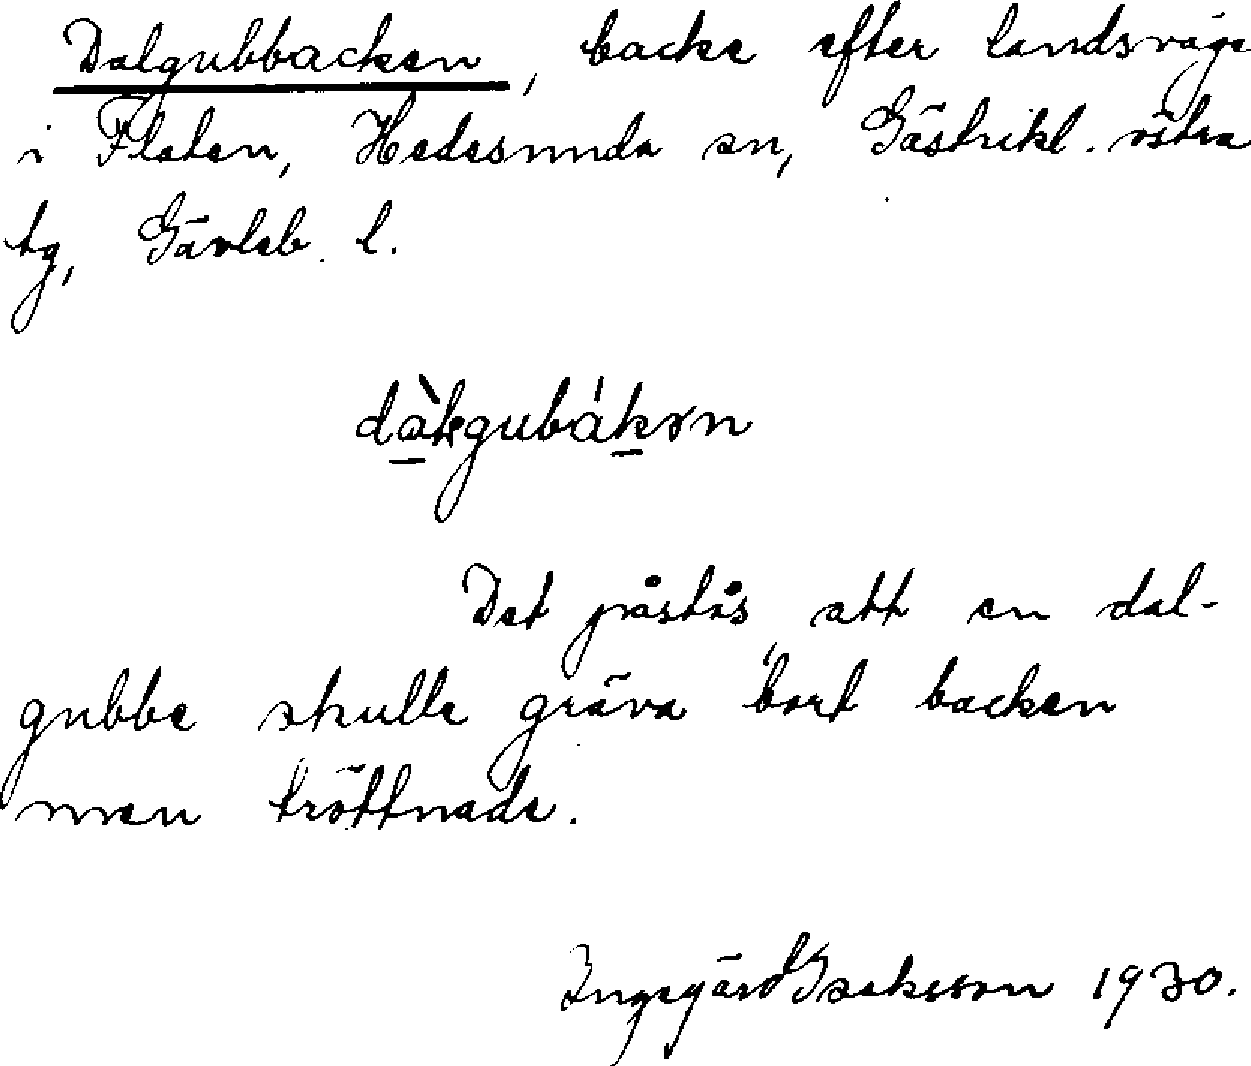 Dalgubbacken, backe efter landsväge
i Flaten, Hedesunda sn, Gästrikl. östra
tg, Gävleb. l.
Det påstås, att en dal-
gubbe skulle gräva bort backen
men tröttnade.
Ingegärd Isaksson 1930.